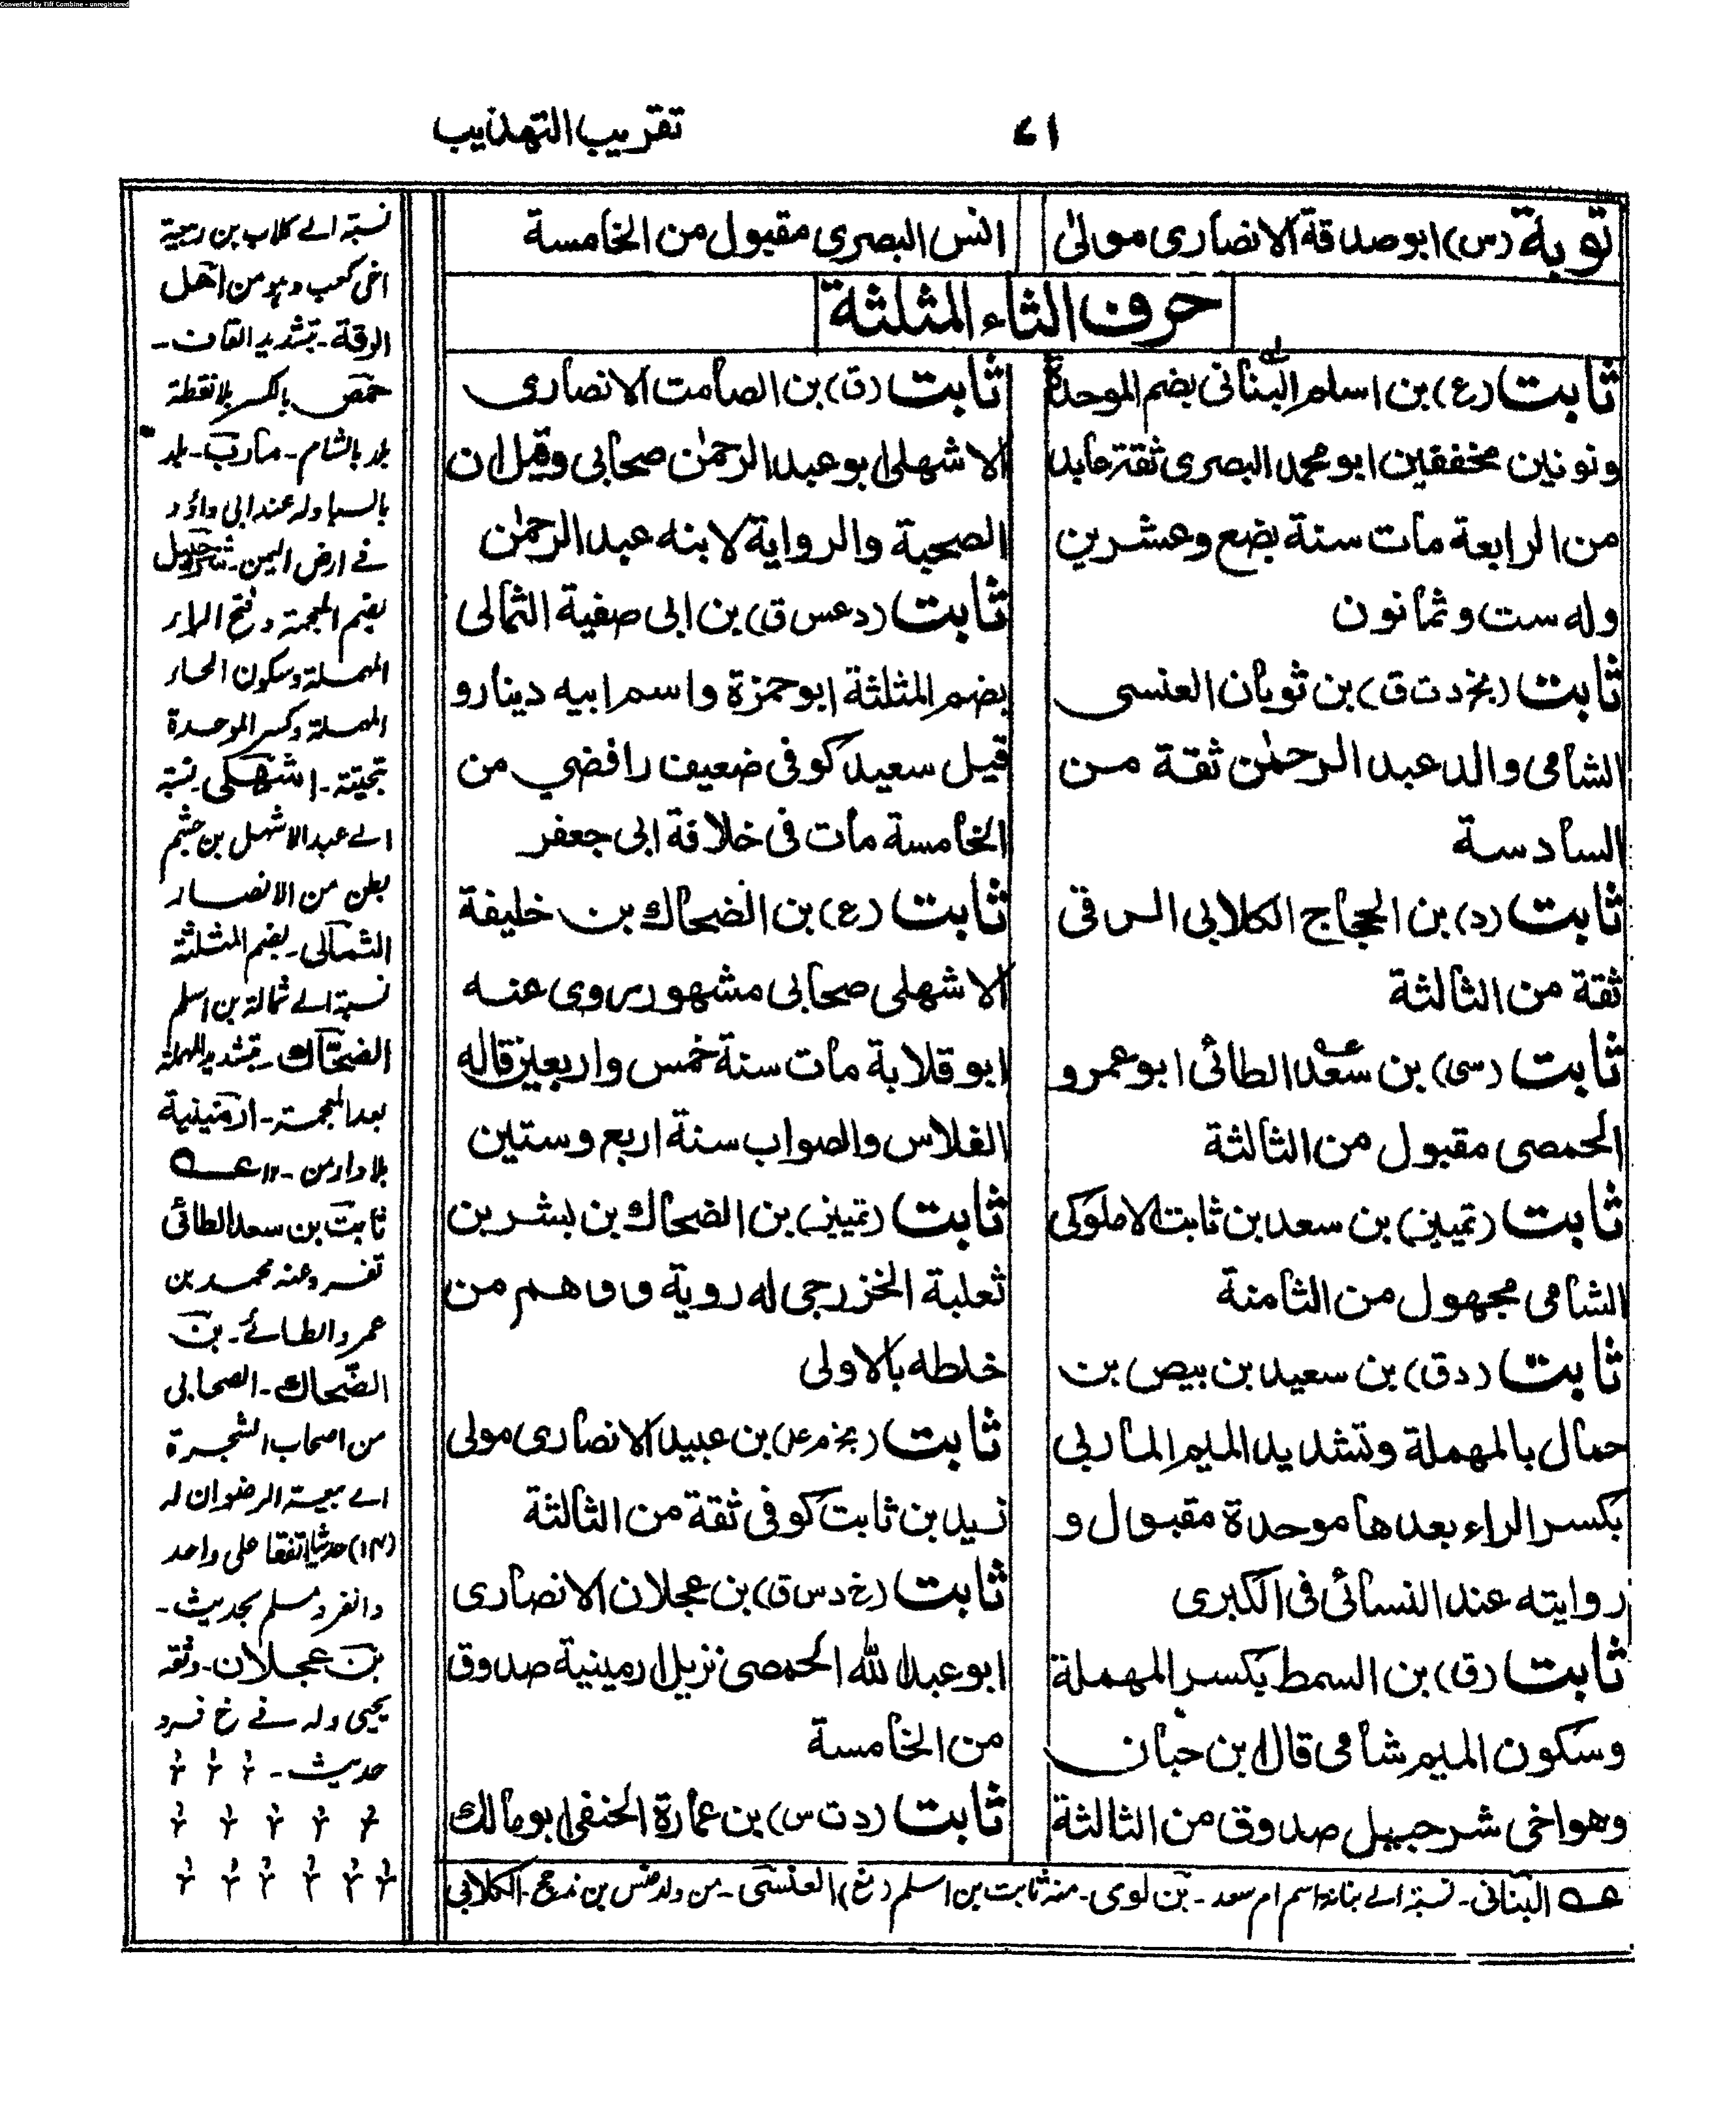 Converted by Tiff Combine - unregistered
٤١ تقريب التهذيب
توبة (س) ابو صدقة الانصارى مولى
انس البصرى مقبول من الخامسة
حرف الثاء المثلثة
ثابت (ع) بن اسلم البنانى بضم الموحدة
ونونين مخففين ابو محمد البصرى ثقة عابد
من الرابعة مات سنة بضع وعشرين
وله ست وثمانون
ثابت (بخ د ت ق) بن ثوبان العنسى
الشامى والد عبد الرحمٰن ثقة من
السادسة
ثابت (د) بن الحجاج الكلابى الرقى
ثقة من الثالثة
ثابت (سى) بن سعد الطائى ابو عمرو
الحمصى مقبول من الثالثة
ثابت (تمييز) بن سعد بن ثابت الاملوكى
الشامى مجهول من الثامنة
ثابت (د ق) بن سعيد بن بيص بن
حمال بالمهملة وتشديد الميم المأربى
بكسر الراء بعدها موحدة مقبول و
روايته عند النسائى فى الكبرى
ثابت (ق) بن السمط بكسر المهملة
وسكون الميم شامى قال ابن حبان
وهو اخى شرحبيل صدوق من الثالثة
ثابت (ق) بن الصامت الانصارى
الاشهلى ابو عبد الرحمٰن صحابى وقيل ان
الصحبة والرواية لابنه عبد الرحمٰن
ثابت (د عس ق) بن ابى صفية الثمالى
بضم المثلثة ابو حمزة واسم ابيه دينار و
قيل سعيد كوفى ضعيف رافضي من
الخامسة مات فى خلافة ابى جعفر
ثابت (ع) بن الضحاك بن خليفة
الاشهلى صحابى مشهور روى عنه
ابو قلابة مات سنة خمس واربعين قاله
الفلاس والصواب سنة اربع وستين
ثابت (تمييز) بن الضحاك بن بشر بن
ثعلبة الخزرجى له روية ووهم من
خلطه بالاولى
ثابت (بخ م عد) بن عبيد الانصارى مولى
زيد بن ثابت كوفى ثقة من الثالثة
ثابت (خ د س ق) بن عجلان الانصارى
ابو عبد الله الحمصى نزيل ارمينية صدوق
من الخامسة
ثابت (د ت س) بن عمارة الحنفى ابو مالك
عه البنانى - نسبة الے بنانة اسم ام سعد - بن لوى - منه ثابت بن اسلم (مغ) العنسى - من ولد عنس بن مذحج - الكلابى
نسبة الے كلاب بن ربيعة
اخى كعب وهو من اهل
الرقة - بتشديد القاف -
حمص بالكسر بلا نقطة
بلد بالشام - مأرب - بلد
بالسبا وله عند ابى داؤد
فے ارض اليمن - شرحبيل
بضم المعجمة وفتح الراء
المهملة وسكون الحاء
المهملة وكسر الموحدة
تحتية - اشهلى نسبة
الے عبد الاشهل بن جشم
بطن من الانصار
الثمالى - بضم المثلثة
نسبة الے ثمالة بن اسلم
الضحاك - بتشديد المهملة
بعد المعجمة - ارمينية
بلاد ارمن - ١٢ عه
ثابت بن سعد الطائى
تفرد عنه محمد بن
عمرو الطائے - بن
الضحاك - الصحابى
من اصحاب الشجرة
اے بيعة الرضوان له
(١٤) حديثا اتفقا على واحد
وانفرد مسلم بحديث -
بن عجلان - وثقه
يحيى وله فے خ فرد
حديث -